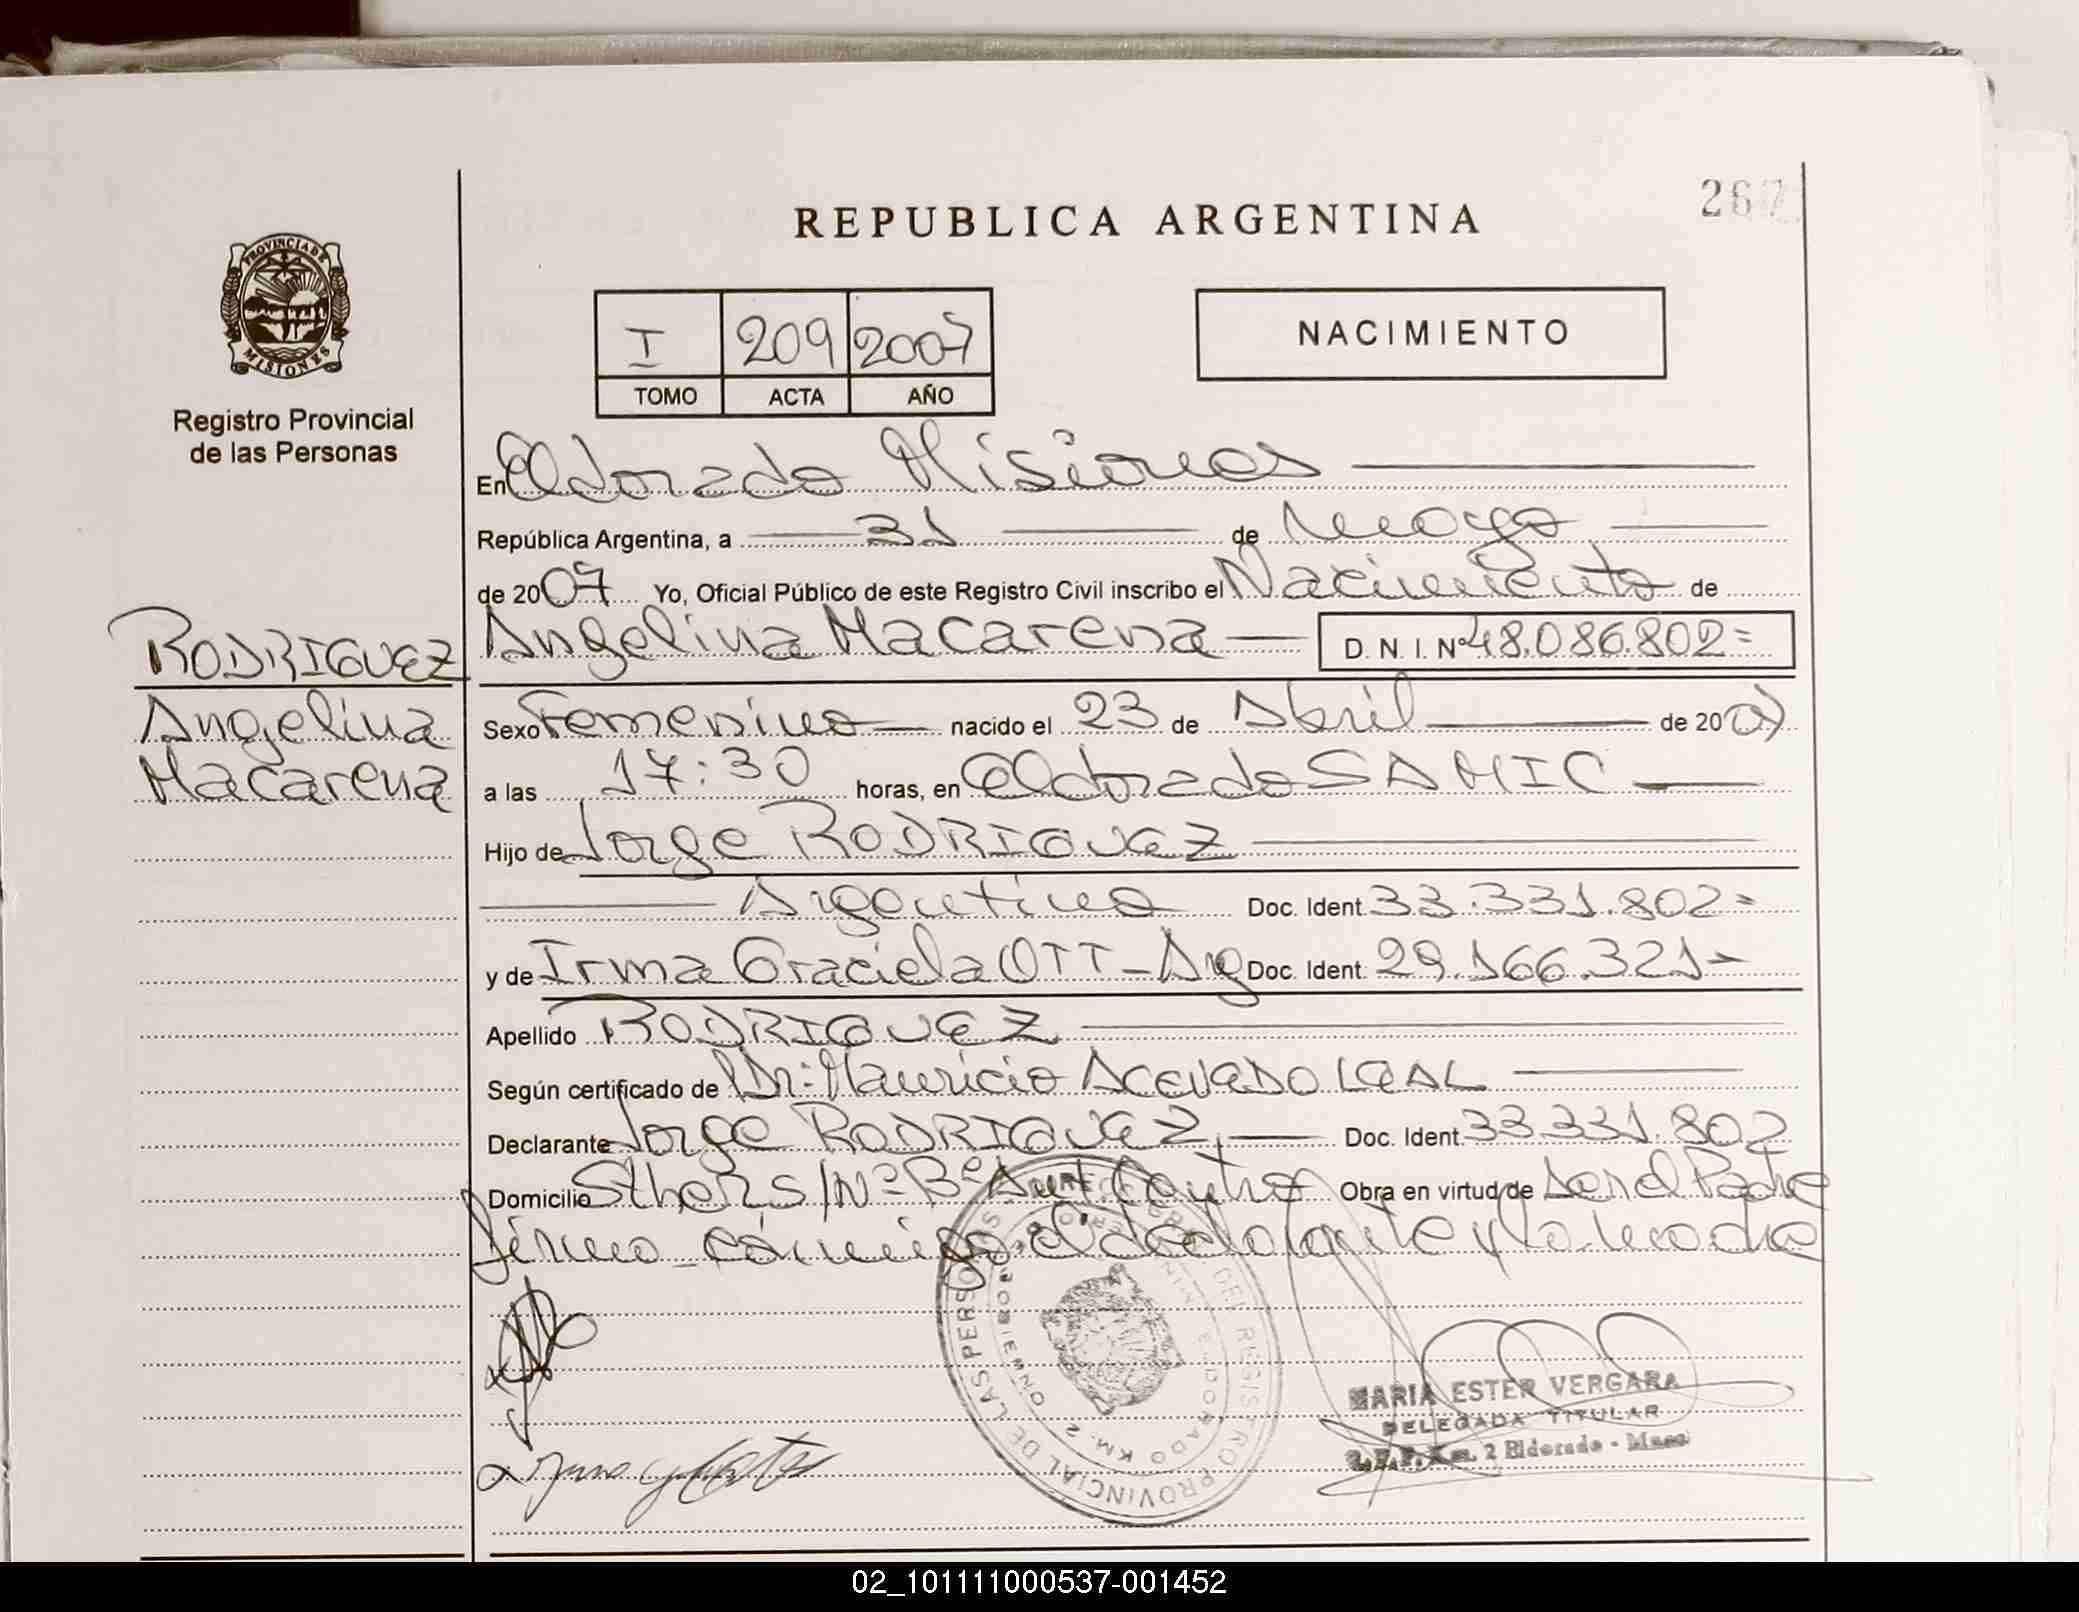 REPUBLICA ARGENTINA
267
PROVINCIA DE
MISIONES
Registro Provincial
de las Personas
I 209 2007
TOMO ACTA AÑO
NACIMIENTO
En Eldorado Misiones
República Argentina, a 31 de Mayo
de 2007 Yo, Oficial Público de este Registro Civil inscribo el Nacimiento de
RODRIGUEZ Angelina Macarena D. N. I. Nº 48.086.802=
Angelina
Macarena
Sexo Femenino nacido el 23 de Abril de 2007
a las 17:30 horas, en Eldorado SAMIC
Hijo de Jorge RODRIGUEZ
Argentino Doc. Ident. 33.331.802=
y de Irma Graciela OTT - Arg Doc. Ident. 29.166.321-
Apellido RODRIGUEZ
Según certificado de Dr: Mauricio ACEVEDO LEAL
Declarante Jorge RODRIGUEZ Doc. Ident. 33.331.802
Domicilio S/Nº Bº Obra en virtud de ser el Padre
firma conmigo el declarante y la madre
REGISTRO PROVINCIAL DE LAS PERSONAS
ELDORADO KM. 2
MARIA ESTER VERGARA
DELEGADA TITULAR
R.P.P. Km. 2 Eldorado - Mnes
02_101111000537-001452